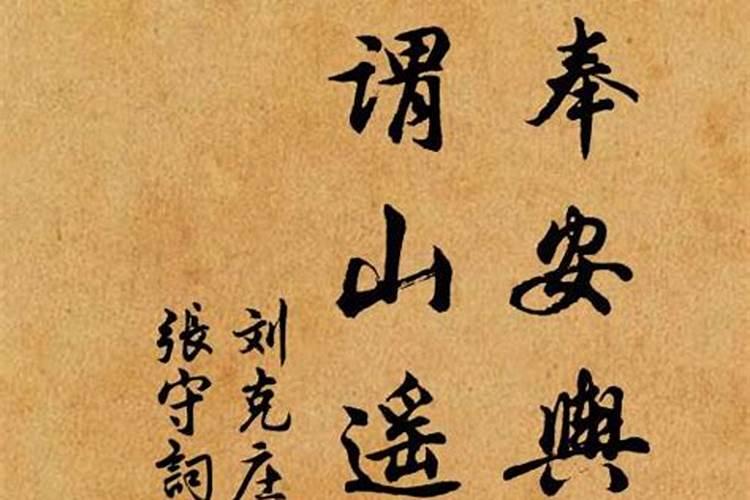 奉安輿
謂山遥
刘克庄
張守詞